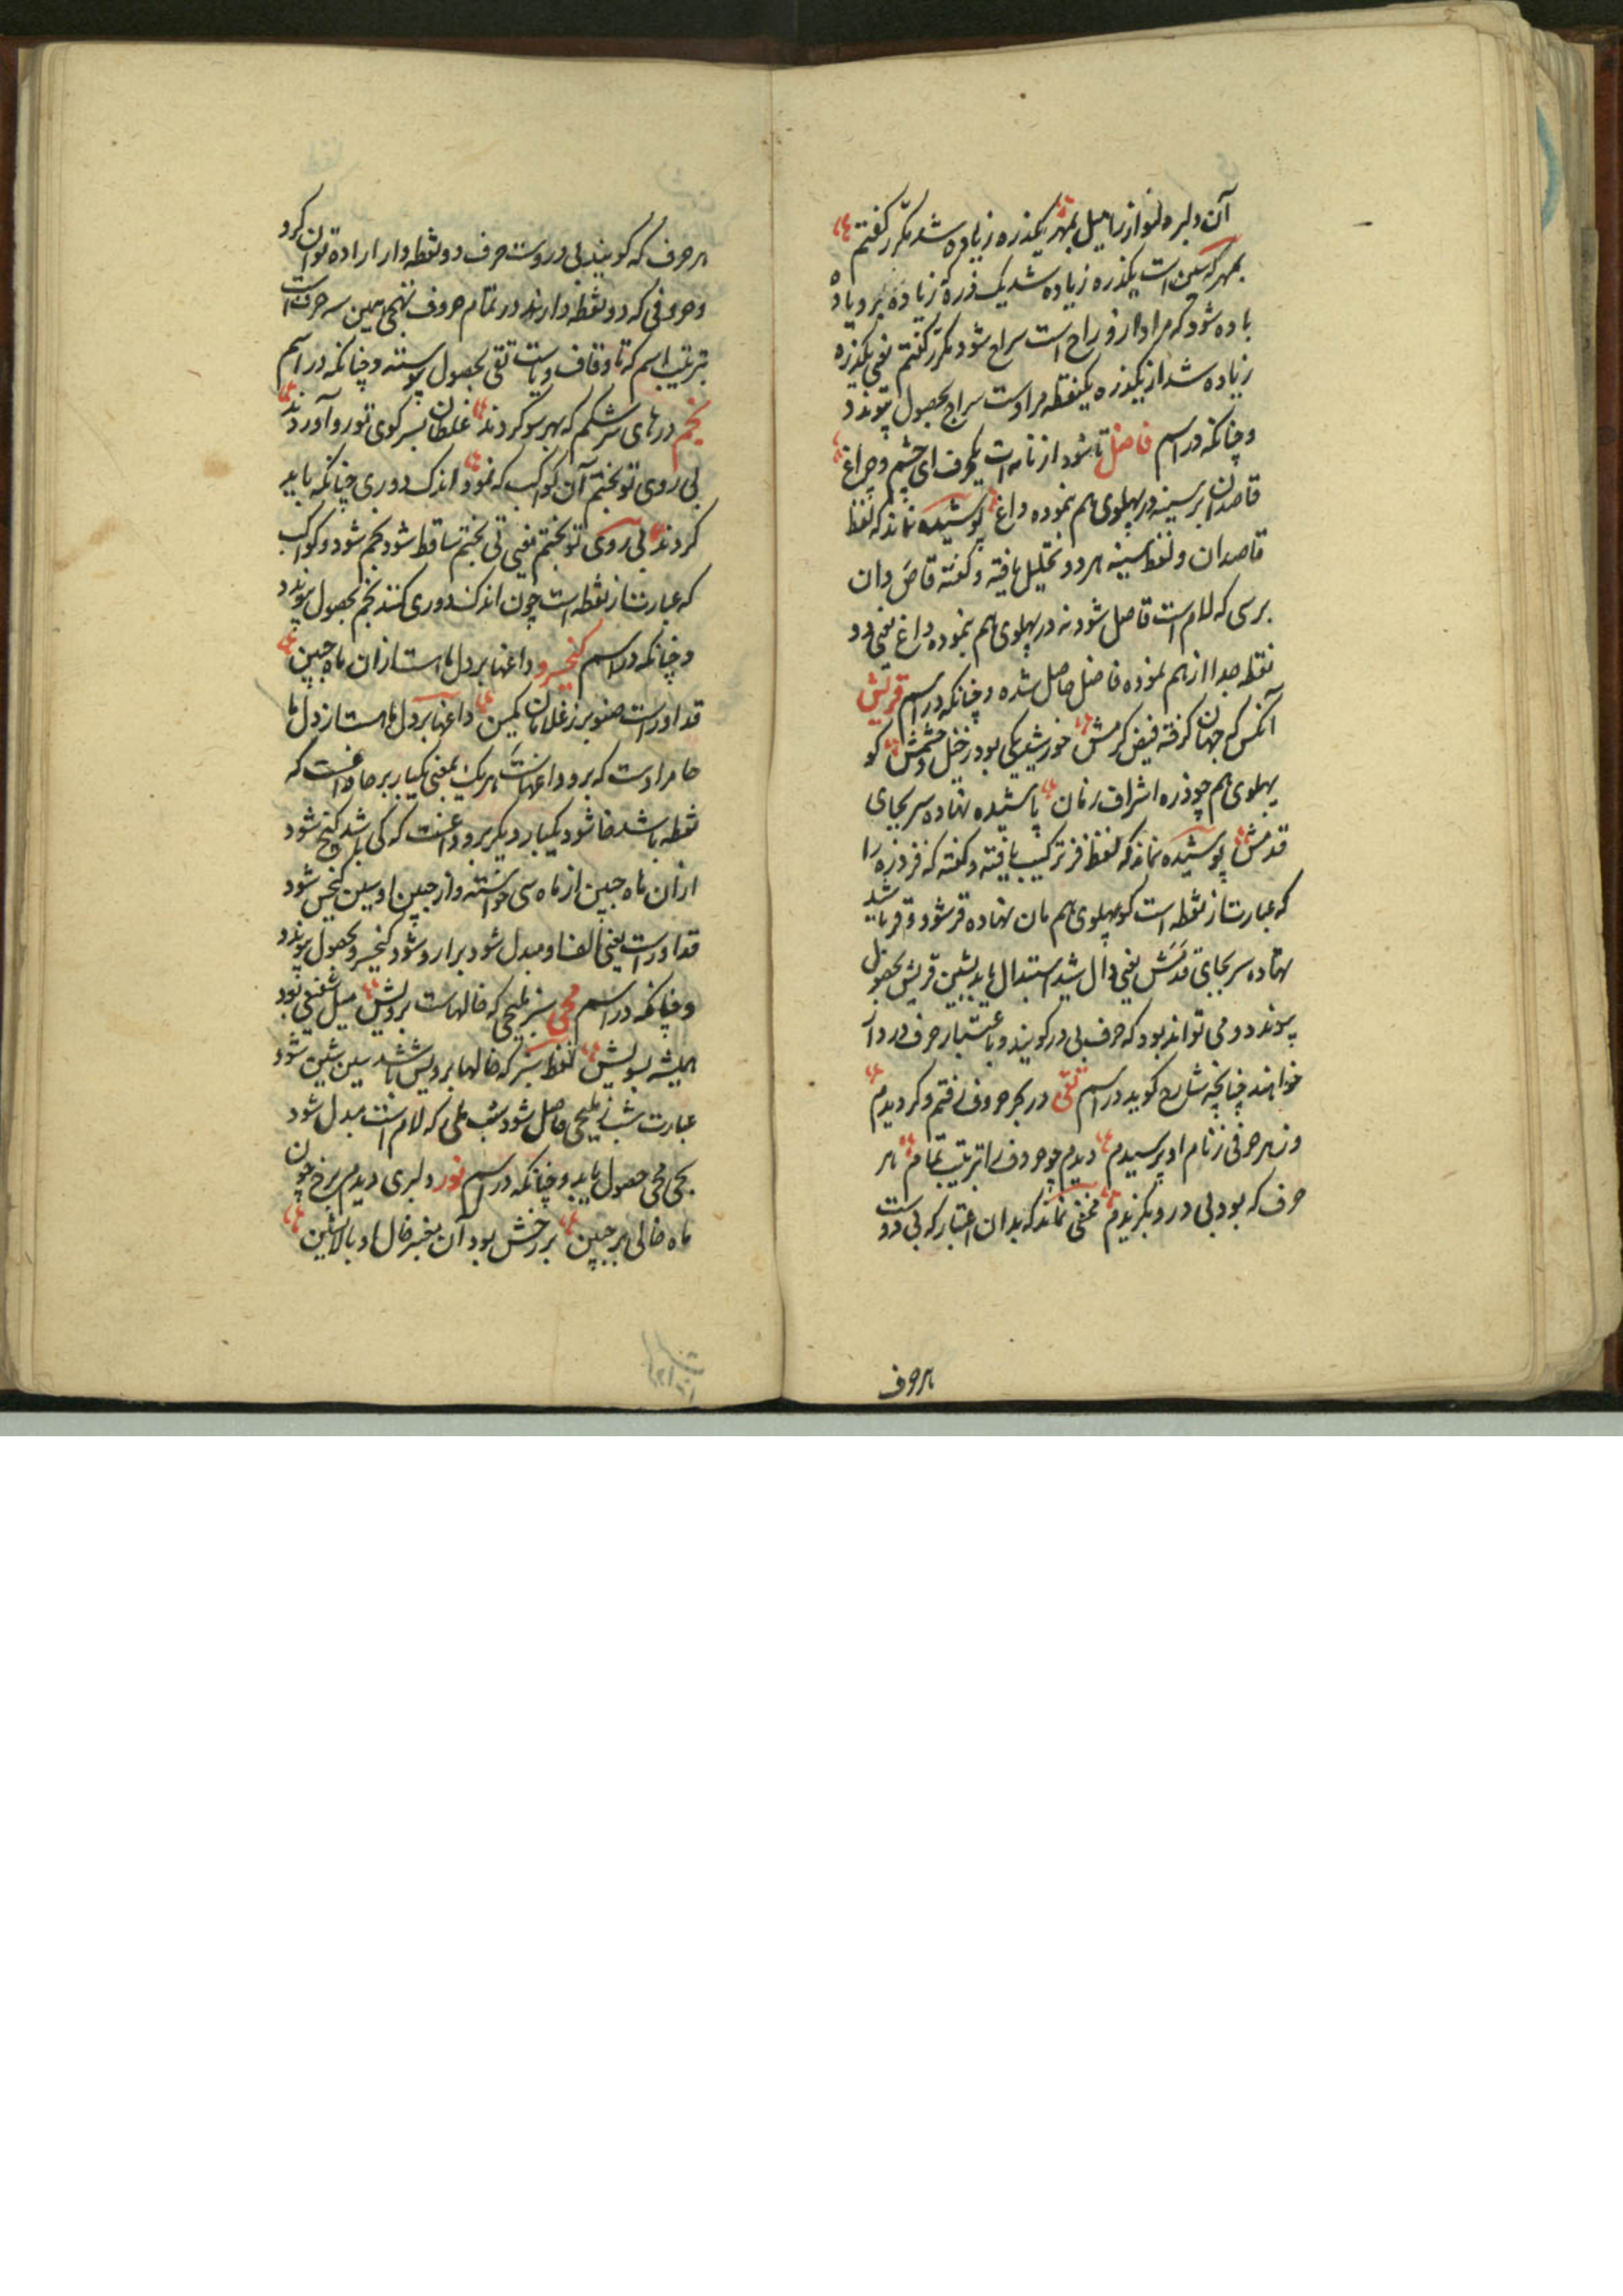 آن دلبر دلنواز را میل بمهر یکذره زیاده شد مکرر گفتم
بمهر که سین است یکذره زیاده شد یک ذره زیاده بر و یا ده
باده شود که مراد از و راح است سراح شود مکرر گفتم یعنی یکذره
زیاده شد از یکذره یکنقطه مرادست سراج بحصول پیوندد
و چنانکه در اسم فاضل تا شود از نامه ات یکحرف ای چشم و چراغ
قاصدان بر سینه در پهلوی هم بنموده داغ پوشیده نماند که لفظ
قاصدان و لفظ سینه هر دو تحلیل یافته و گفته قاص دان
برسی که لام است قاصل شود نه در پهلوی هم بنموده داغ یعنی دو
نقطه جدا از هم نموده فاضل حاصل شده و چنانکه در اسم قریش
آنکس که جهان گرفته فیض کرمش خورشید یکی بود ز خیل و حشمش کو
پهلوی هم چو ذره اشراف زمان پاشیده نهاده سر بجای
قدمش پوشیده نماند که لفظ فر ترکیب یافته و گفته که فر ذره را
که عبارت از نقطه است کو پهلوی هم مان نهاده قر شود و قر پا شید
نهاده سر بجای قدمش یعنی دال شید استبدال یابد بشین قریش بحصول
پیوندد و می تواند بود که حرف بی در گویند و با عتبار حرف در دار
خواهند چنانچه شارح گوید در اسم تقی در بحر حروف رفتم و گردیدم
وز هر حرفی ز نام او پرسیدم دیدم چو حروف را بترتیب تمام هر
حرف که بود بی در و بگزیدم مخفی نماند که بدان اعتبار که بی دروست
هر حرف
هر حرف که گویند بی دروست حرف دو نقطه دار اراده توان کرد
و حروفی که دو نقطه دارند در تمام حروف تهجی همین سه حرف است
بترتیب اسم که تا و قاف و یاست تقی بحصول پیوسته و چنانکه در اسم
نجم درهای سرشکم که بهر سو کردند غلطان بسر کوی تو رو آوردند
بی روی تو بختم آن کواکب که نمود اندک دوری چنانکه باید
کردند بی روی تو بختم یعنی تی بختم ساقط شود بجم شود و کواکب
که عبارت از نقطه است چون اندک دوری کنند نجم بحصول پیوندد
و چنانکه در اسم کیخسرو داغها بر دل ماست از ان ماه جبین
قد او راست صنوبر ز غلامان کمین داغها بر دل ماست از دل ما
حا مرادست که بر و داغهاست هر یک بمعنی یکبار بر حا داغست که
نقطه باشد خا شود یکبار دیگر برو داغست که کی باشد کیخ شود
از ان ماه جبین از ماه سی خواسته و از جبین او سین کیخس شود
قد او راست یعنی الف او مبدل شود برا رو شود کیخسرو بحصول پیوندد
و چنانکه در اسم محی سبز ملیحی که خالهاست برویش میل شفیعی بود
همیشه بسویش لفظ سبز که خالها برویش باشد سین شین شود
عبارت شب ز ملیحی حاصل شود شب ملی که لام است مبدل شود
بحی محی حصول یابد و چنانکه در اسم نور دلبری دیدم برخ چون
ماه خالی بر جبین بر رخش بود آن بغبر خال او بالانشین